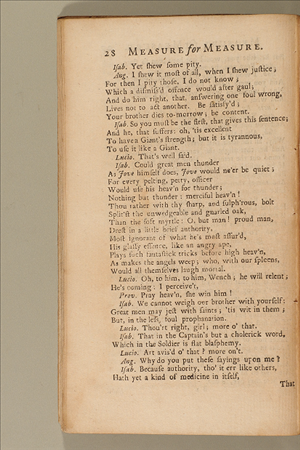 28 MEASURE for MEASURE.
Isab. Yet shew some pity.
Ang. I shew it most of all, when I shew justice;
For then I pity those, I do not know;
Which a dismiss'd offence would after gaul;
And do him right, that, answering one foul wrong,
Lives not to act another. Be satisfy'd;
Your brother dies to-morrow; be content.
Isab. So you must be the first, that gives this sentence;
And he, that suffers: oh, 'tis excellent
To have a Giant's strength; but it is tyrannous,
To use it like a Giant.
Lucio. That's well said.
Isab. Could great men thunder
As Jove himself does, Jove would ne'er be quiet;
For every pelting, petty, officer
Would use his heav'n for thunder;
Nothing but thunder: merciful heav'n!
Thou rather with thy sharp, and sulph'rous, bolt
Split'st the unwedgeable and gnarled oak,
Than the soft myrtle: O, but man! proud man,
Drest in a little brief authority,
Most ignorant of what he's most assur'd,
His glassy essence, like an angry ape,
Plays such fantastick tricks before high heav'n,
As makes the angels weep; who, with our spleens,
Would all themselves laugh mortal.
Lucio. Oh, to him, to him, Wench; he will relent;
He's coming: I perceive't,
Prov. Pray heav'n, she win him!
Isab. We cannot weigh our brother with yourself:
Great men may jest with saints; 'tis wit in them;
But, in the less, foul prophanation.
Lucio. Thou'rt right, girl; more o' that.
Isab. That in the Captain's but a cholerick word,
Which in the Soldier is flat blasphemy.
Lucio. Art avis'd o' that? more on't.
Ang. Why do you put these sayings upon me?
Isab. Because authority, tho' it err like others,
Hath yet a kind of medicine in itself,
That